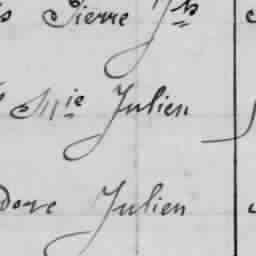 Pierre Jh
Mie Julien
dore Julien